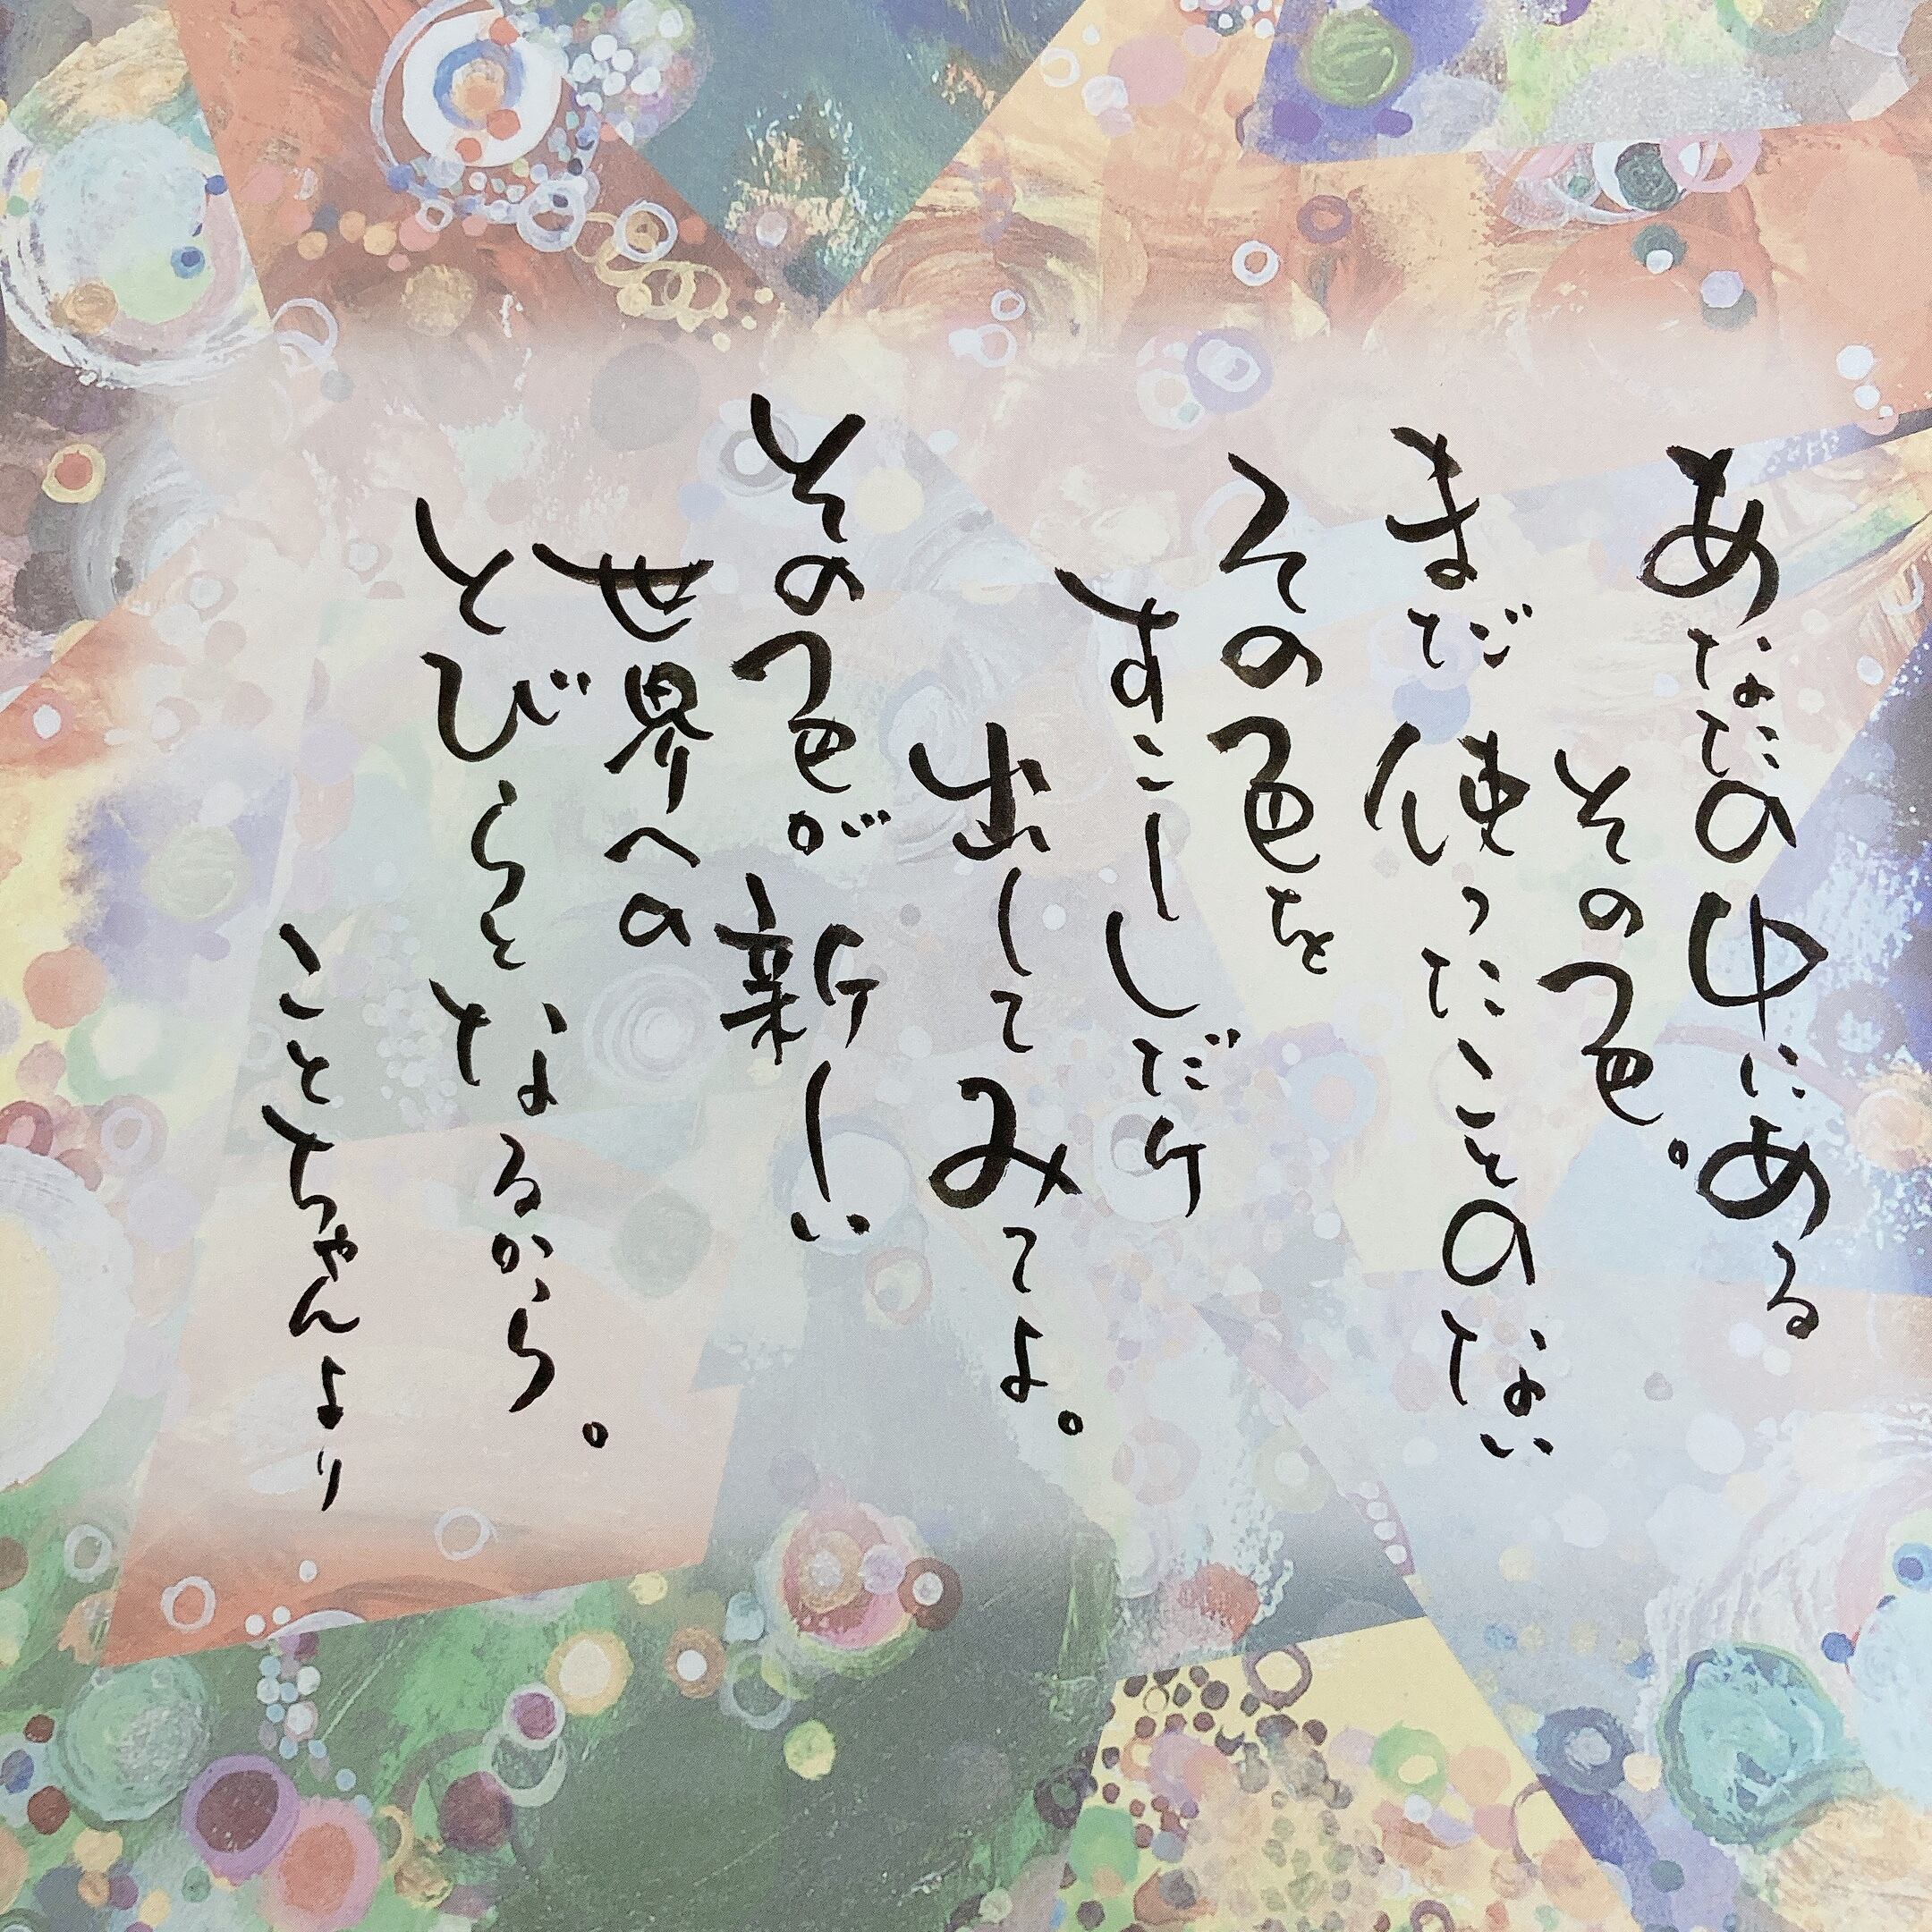 あなたの中にある
その色。
まだ使ったことのない
その色を
すこししだけ
出してみてよ。
その色が新しい
世界への
とびらとなるから。
ことちゃんより